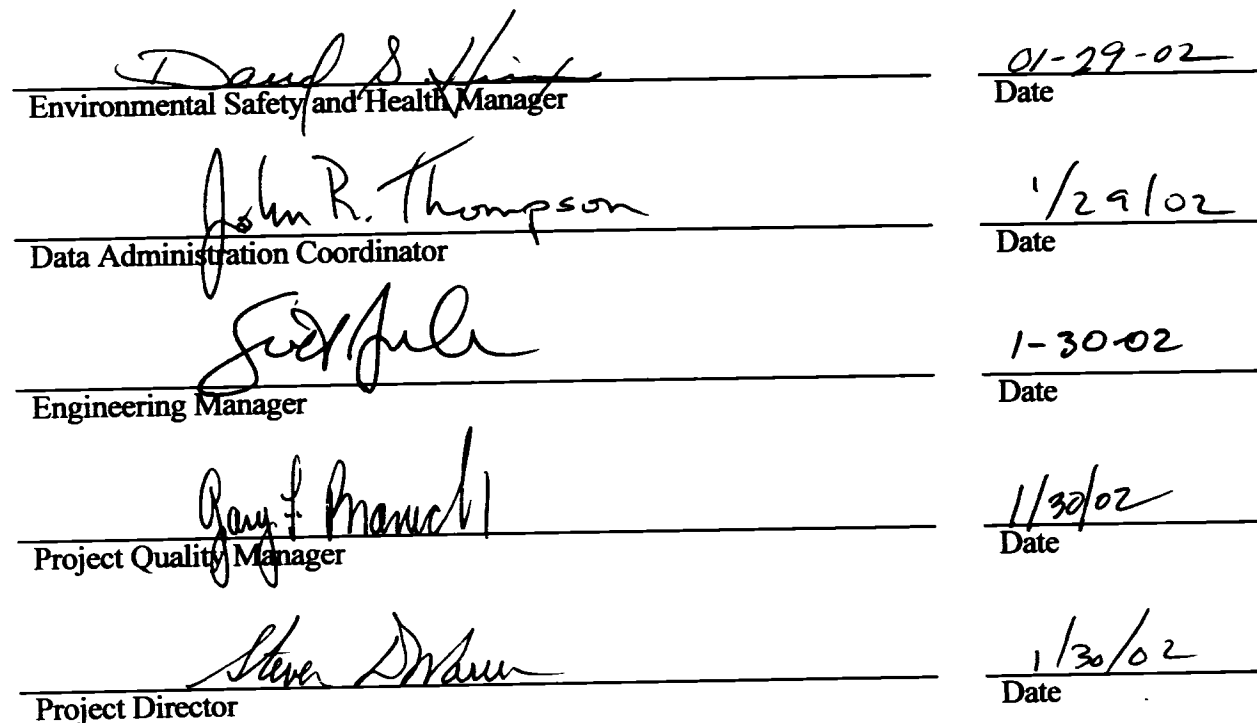 David S. 01-29-02
Environmental Safety and Health Manager Date
John R. Thompson 1/29/02
Data Administration Coordinator Date
1-30-02
Engineering Manager Date
Gary 1/30/02
Project Quality Manager Date
Steven 1/30/02
Project Director Date